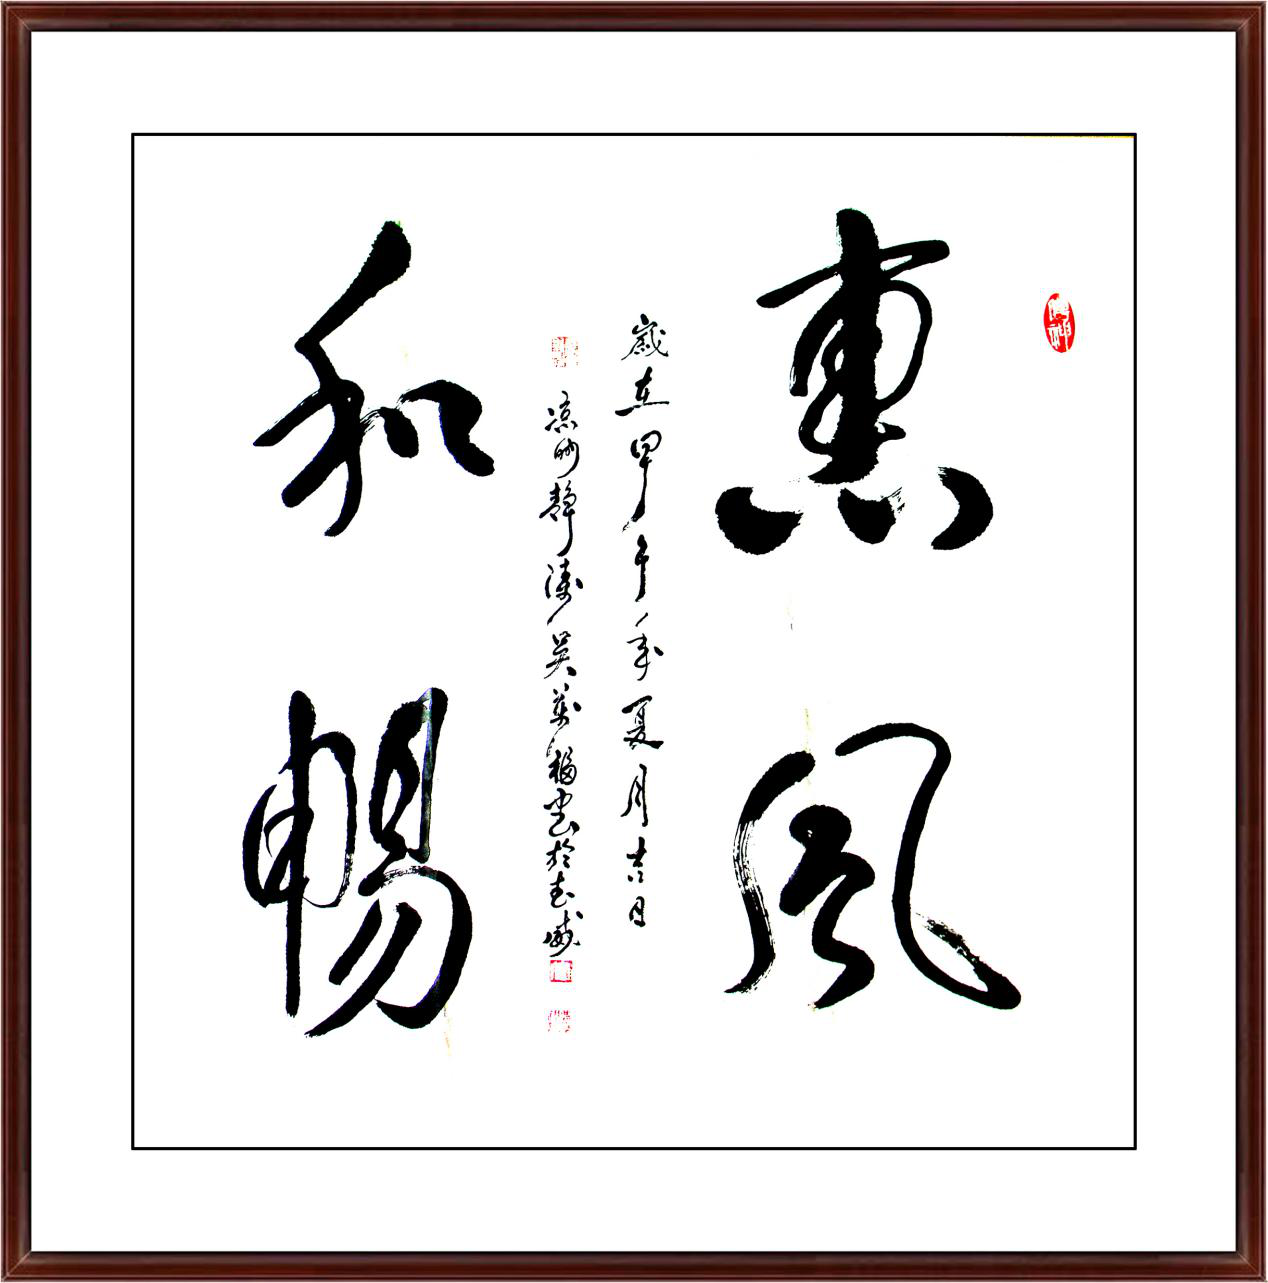 惠風
和暢
歲在甲午年夏月吉日
涼州靜濤吳萬福書於武威